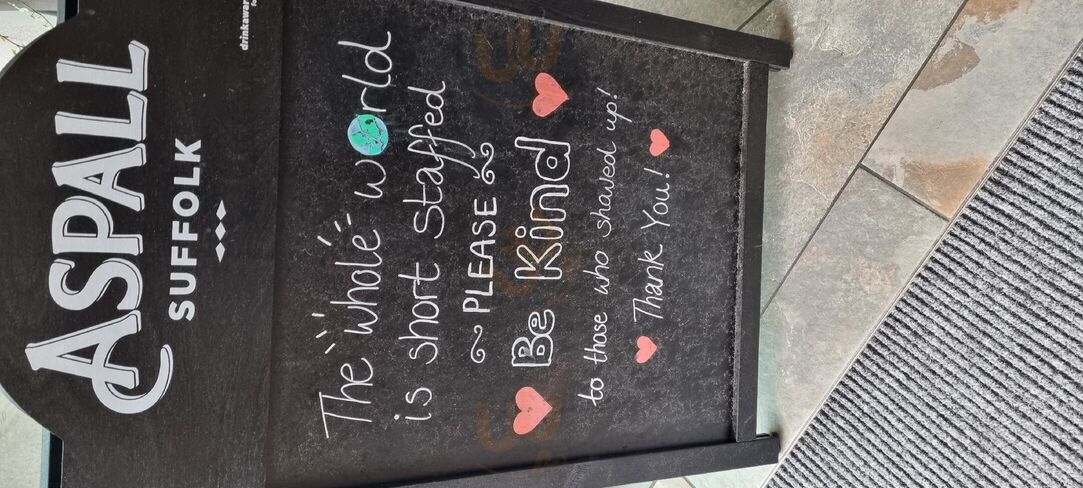 ASPALL
SUFFOLK
The whole world
is short staffed
PLEASE
Be Kind
to those who showed up!
Thank You!